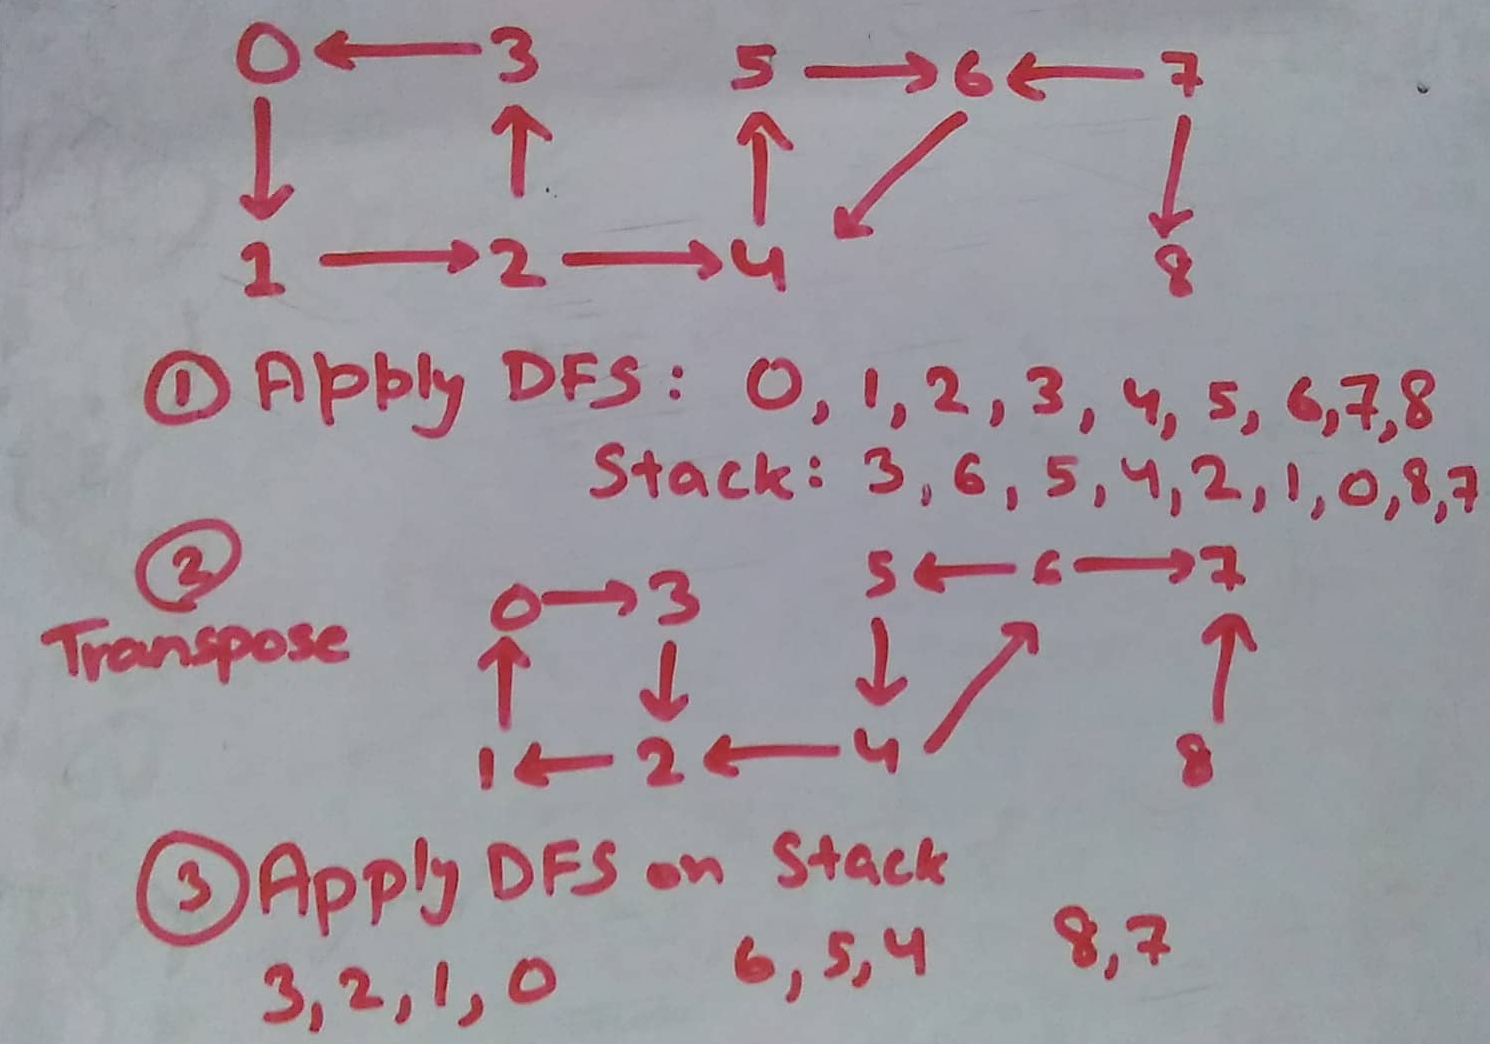 0 ← 3 5 → 6 ← 7
1 → 2 → 4 8
① Apply DFS: 0, 1, 2, 3, 4, 5, 6,7,8
Stack: 3, 6, 5, 4, 2, 1, 0, 8, 7
②
Transpose
0 → 3 5 ← 6 → 7
1 ← 2 ← 4 8
③ Apply DFS on Stack
3, 2, 1, 0 6, 5, 4 8, 7